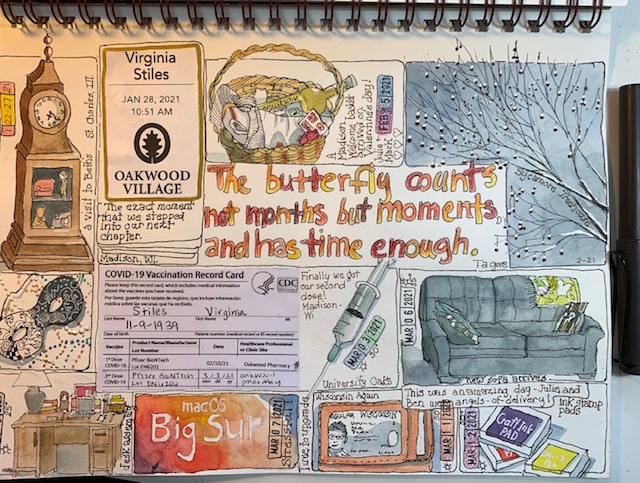 22-27
St. Charles, Ill.
a visit to Beth's
Virginia
Stiles
JAN 28, 2021
10:51 AM
OAKWOOD
VILLAGE
"The exact moment
that we stepped
into our next
chapter."
Madison, WI.
A
Madison
welcome basket
arrived on
Valentine's day!
Julie +
Mark ♡♡♡
FEB 5 2021
Sycamore
2-21
The butterfly counts
not months but moments,
and has time enough.
Tagore
COVID-19 Vaccination Record Card
Please keep this record card, which includes medical information
about the vaccines you have received.
Por favor, guarde esta tarjeta de registro, que incluye información
médica sobre las vacunas que ha recibido.
CDC
Stiles Virginia
Last Name First Name MI
11-9-1939
Date of birth Patient number (medical record or IIS record number)
Vaccine
Product Name/Manufacturer
Lot Number
Date
Healthcare Professional
or Clinic Site
1st Dose
COVID-19
Pfizer BioNTech
Lot EN6201
02/10/21
Oakwood Pharmacy
2nd Dose
COVID-19
Pfizer BioNTech
3/3/21
mm dd yy
oakwood
pharmacy
Finally we got
our second
dose!
Madison-
WI
MAR 3 2021
University Oaks
MAR 6 2021
new sofa arrives
This was an amazing day - Julie and
Ben were angels-of-delivery!
Ink stamp
pads
macOS
Big Sur
MAR 7 2021
Stressful!
time to upgrade
Wisconsin Again
WISCONSIN
MAR 1 2021
MAR 2021
Craft Ink
PAD